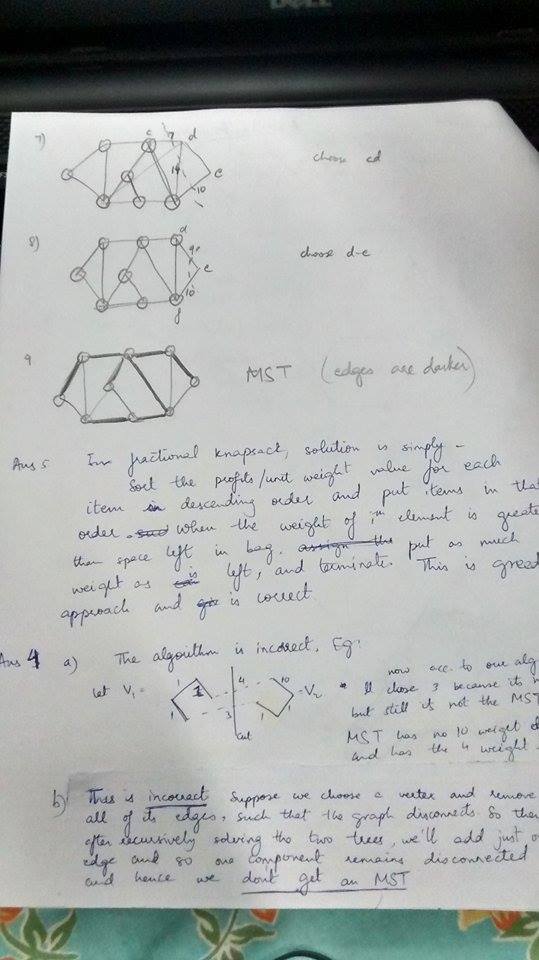 DELL
7)
c 7 d
14
e
10
choose cd
8)
d
9
e
10
f
choose d-e
9
MST (edges are darker)
Ans 5 In fractional knapsack, solution is simply -
Sort the profits/unit weight value for each
item in descending order and put items in that
order. When the weight of ith element is greate
then space left in bag, assign the put as much
weight as is left, and terminate. This is greed
approach and is correct.
Ans 4 a) The algorithm is incorrect. Eg:
let V1 =
1
1
4
3
10
1
V2
cut
now acc. to our alg
ll chose 3 because its
but still it not the MST
MST has no 10 weight
and has the 4 weight
b) This is incorrect Suppose we choose a vertex and remove
all of its edges, such that the graph disconnects. So then
after recursively solving the two trees, we'll add just o
edge and so one component remains disconnected
and hence we dont get an MST